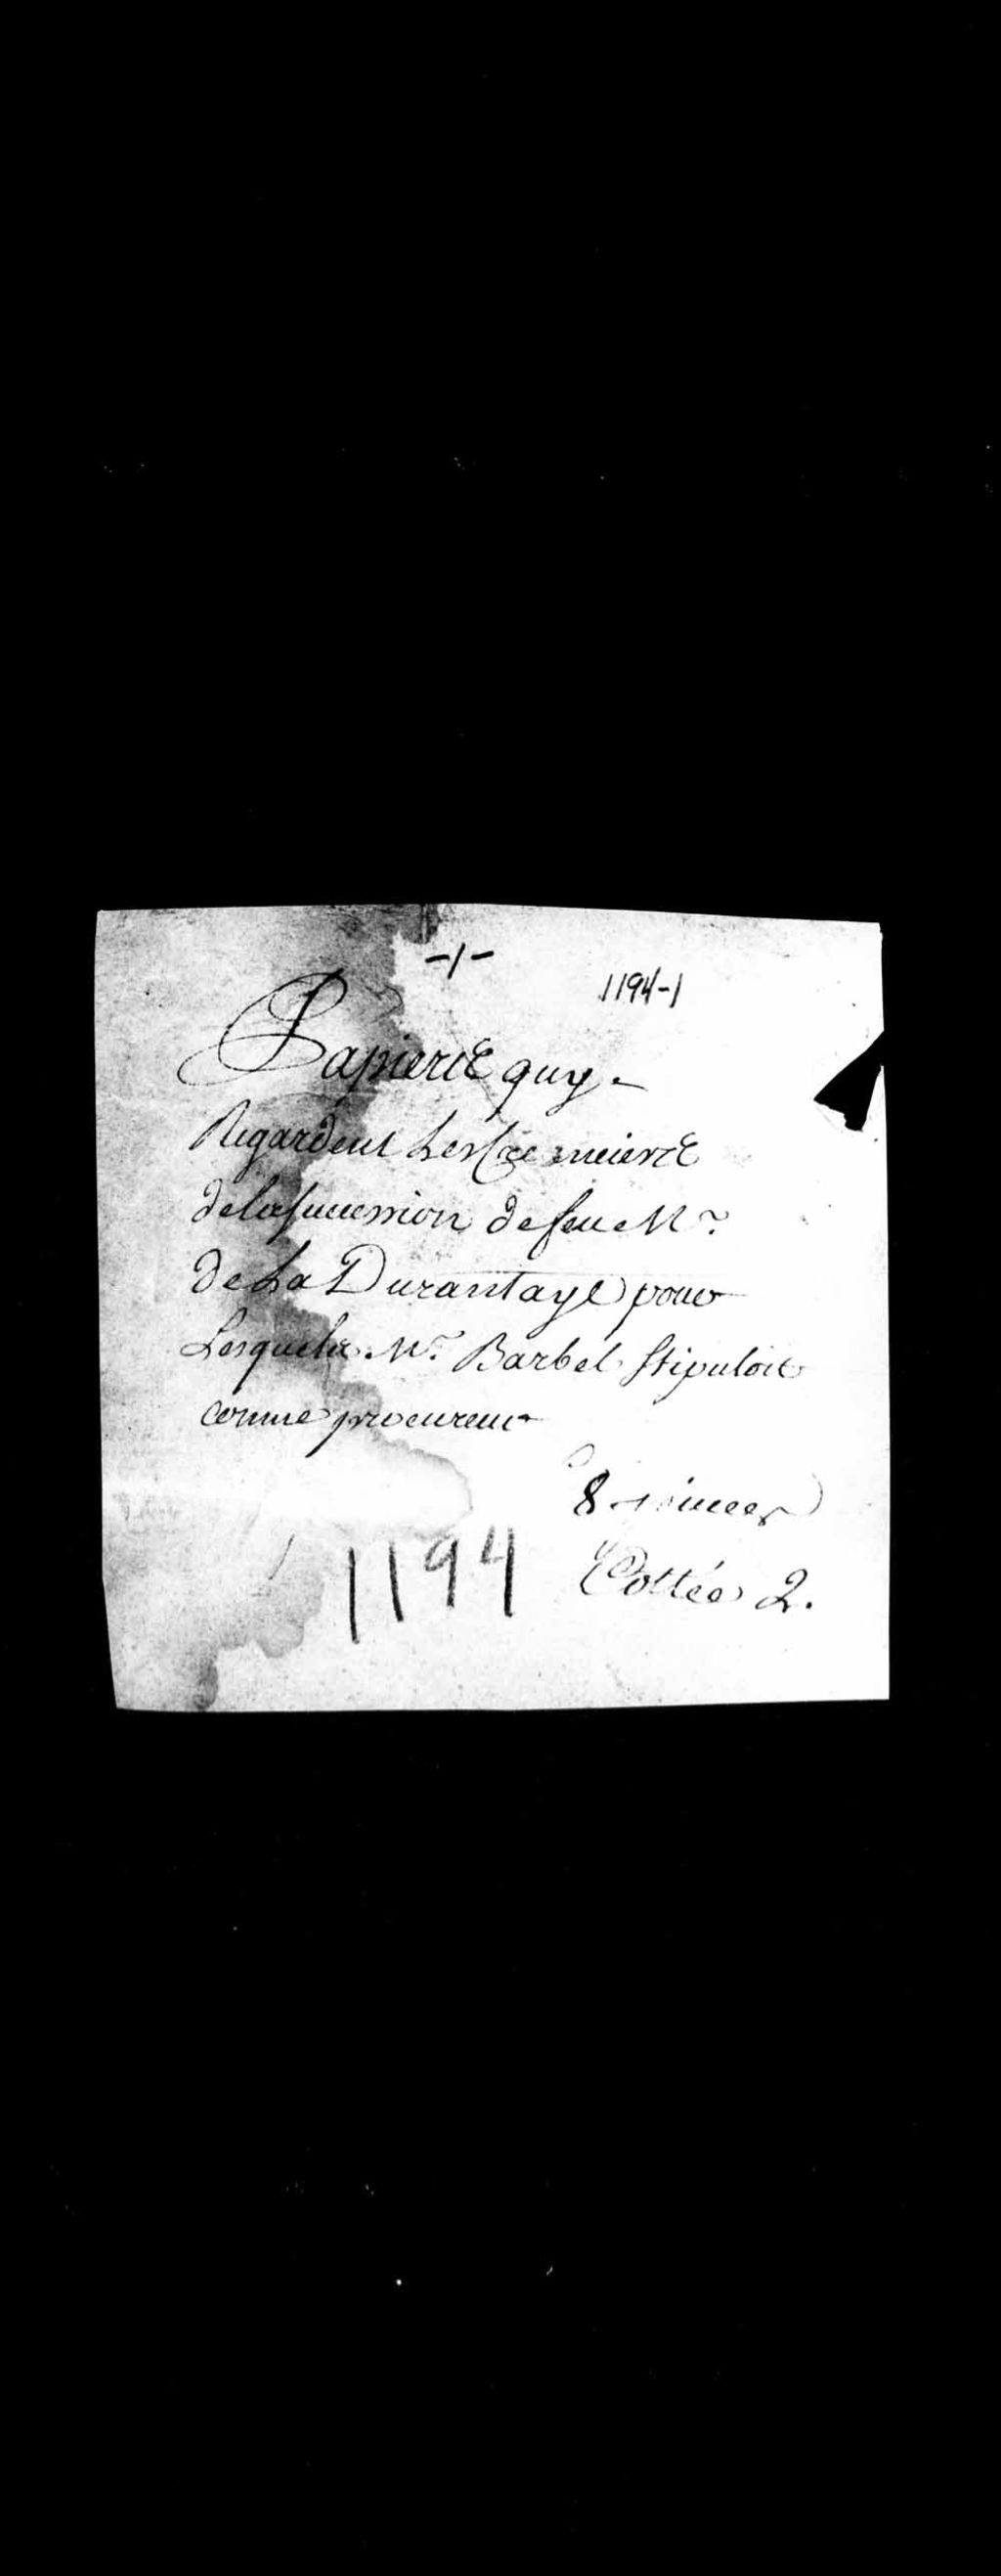 -1-
1194-1
Papiers quy
Regardent Les Créanciers
de la succession de feu Mr
de La Durantaye pour
Lesquels Mr Barbel stipuloit
comme procureur
8 pieces
Cottée 2.
1194